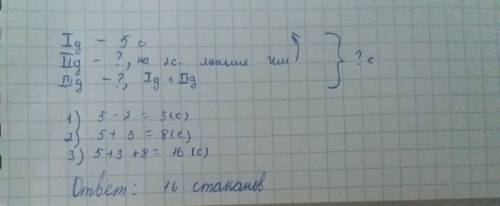 Iд - 5 с
IIд - ?, на 2с. меньше чем
IIIд - ?, Iд + IIд
? с
1) 5 - 2 = 3(с)
2) 5 + 3 = 8(с)
3) 5+3 +8 = 16 (с)
Ответ: 16 стаканов